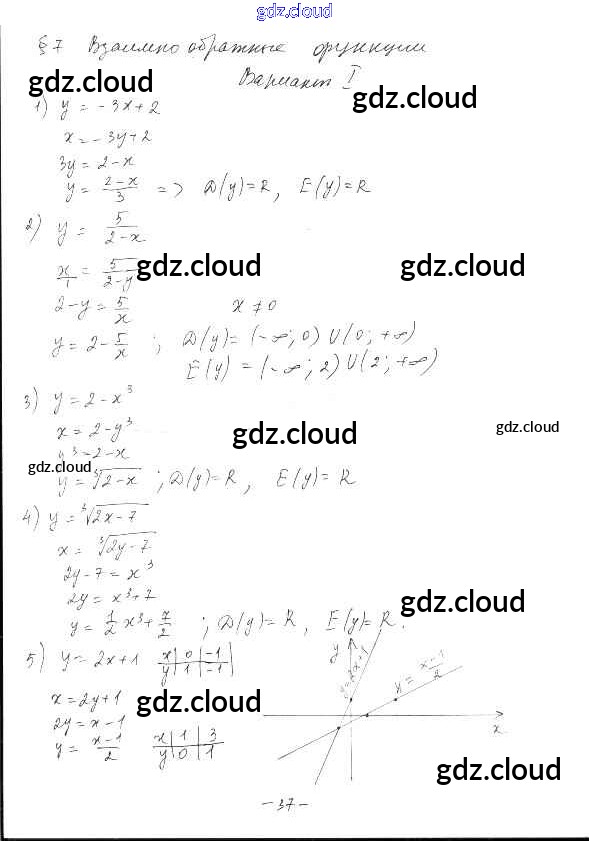 gdz.cloud
§ 7 Взаимно обратные функции
gdz.cloud Вариант I gdz.cloud
1) y = -3x+2
x = -3y+2
3y = 2-x
y = (2-x)/3 => D(y)=R, E(y)=R
2) y = 5/(2-x)
x/1 = 5/(2-y) gdz.cloud gdz.cloud
2-y = 5/x x ≠ 0
y = 2-5/x ; D(y) = (-∞; 0) U (0; +∞)
E(y) = (-∞; 2) U (2; +∞)
3) y = 2-x³
x = 2-y³ gdz.cloud gdz.cloud
y³ = 2-x
gdz.cloud
y = ³√(2-x) ; D(y)=R, E(y) = R
4) y = ³√(2x-7)
x = ³√(2y-7)
2y-7 = x³
2y = x³+7 gdz.cloud
y = 1/2 x³ + 7/2 ; D(y) = R, E(y) = R.
5) y = 2x+1 x | 0 | -1 |
y | 1 | -1 |
y
y=2x+1
y = (x-1)/2
x
x = 2y+1 gdz.cloud
2y = x-1
y = (x-1)/2 x | 1 | 3
y | 0 | 1
gdz.cloud
- 37 -